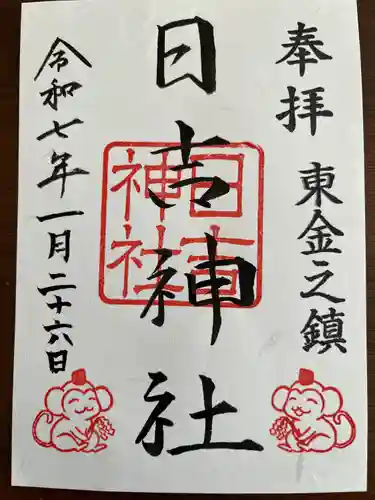 奉拝 東金之鎮
日吉神社
日吉
神社
令和七年一月二十六日